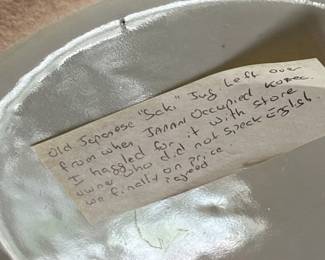 Old Japanese "Saki" Jug Left over
from when JAPAN Occupied Korea.
I haggled for it with store
owner who did not speak English
we finally on price
agreed